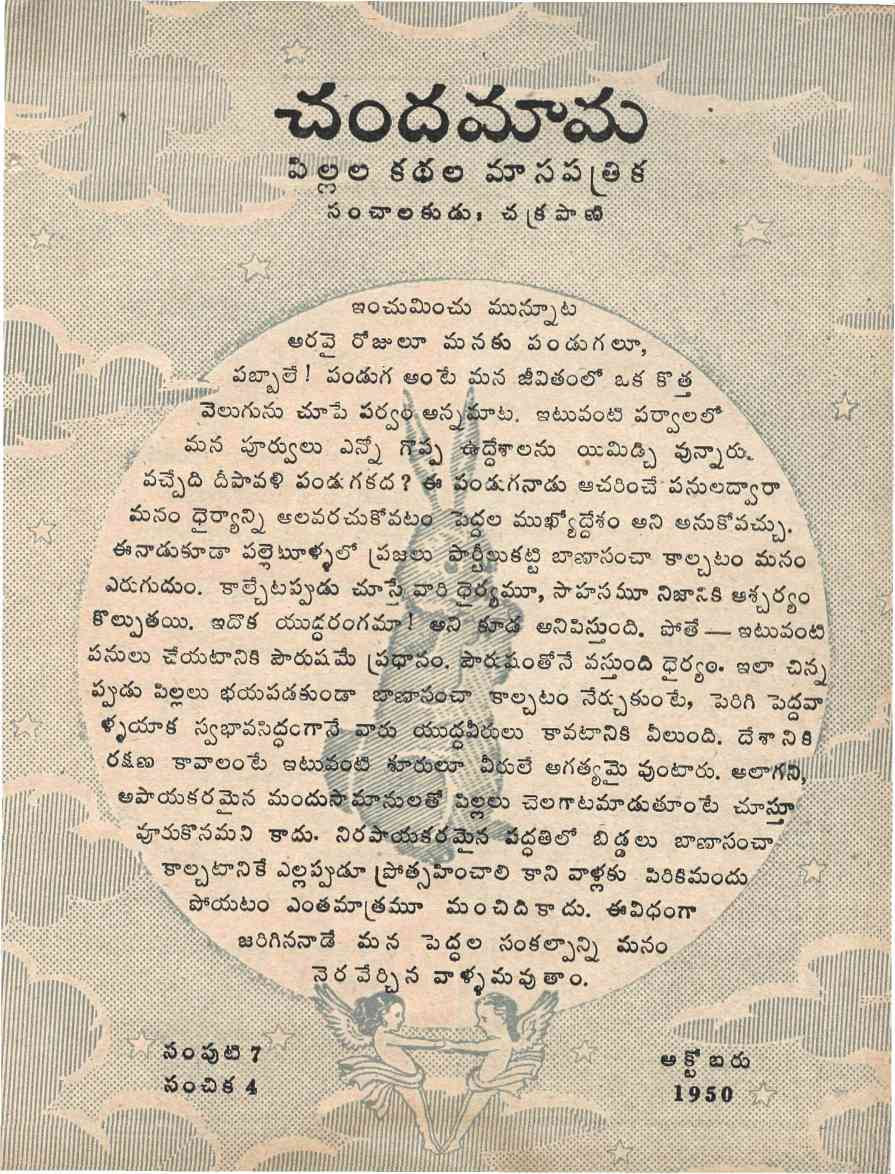 చందమామ
పిల్లల కథల మాసపత్రిక
సంచాలకుడు : చక్రపాణి
ఇంచుమించు మున్నూట
అరవై రోజులూ మనకు పండుగలూ,
పబ్బాలే! పండుగ అంటే మన జీవితంలో ఒక కొత్త
వెలుగును చూపే పర్వం అన్నమాట. ఇటువంటి పర్వాలలో
మన పూర్వులు ఎన్నో గొప్ప ఉద్దేశాలను యిమిడ్చి వున్నారు.
వచ్చేది దీపావళి పండుగకద? ఈ పండుగనాడు ఆచరించే పనులద్వారా
మనం ధైర్యాన్ని అలవరచుకోవటం పెద్దల ముఖ్యోద్దేశం అని అనుకోవచ్చు.
ఈనాడుకూడా పల్లెటూళ్ళలో ప్రజలు పార్టీలుకట్టి బాణాసంచా కాల్చటం మనం
ఎరుగుదుం. కాల్చేటప్పుడు చూస్తే వారి ధైర్యమూ, సాహసమూ నిజానికి ఆశ్చర్యం
కొల్పుతయి. ఇదొక యుద్ధరంగమా! అని కూడ అనిపిస్తుంది. పోతే — ఇటువంటి
పనులు చేయటానికి పౌరుషమే ప్రధానం. పౌరుషంతోనే వస్తుంది ధైర్యం. ఇలా చిన్న
ప్పుడు పిల్లలు భయపడకుండా బాణాసంచా కాల్చటం నేర్చుకుంటే, పెరిగి పెద్దవా
ళ్ళయాక స్వభావసిద్ధంగానే వారు యుద్ధవీరులు కావటానికి వీలుంది. దేశానికి
రక్షణ కావాలంటే ఇటువంటి శూరులూ వీరులే అగత్యమై వుంటారు. అలాగని,
అపాయకరమైన మందుసామానులతో పిల్లలు చెలగాటమాడుతూంటే చూస్తూ
వూరుకొనమని కాదు. నిరపాయకరమైన పద్ధతిలో బిడ్డలు బాణాసంచా
కాల్చటానికే ఎల్లప్పుడూ ప్రోత్సహించాలి కాని వాళ్లకు పిరికిమందు
పోయటం ఎంతమాత్రమూ మంచిది కాదు. ఈవిధంగా
జరిగిననాడే మన పెద్దల సంకల్పాన్ని మనం
నెరవేర్చిన వాళ్ళమవుతాం.
సంపుటి 7
సంచిక 4
అక్టోబరు
1950